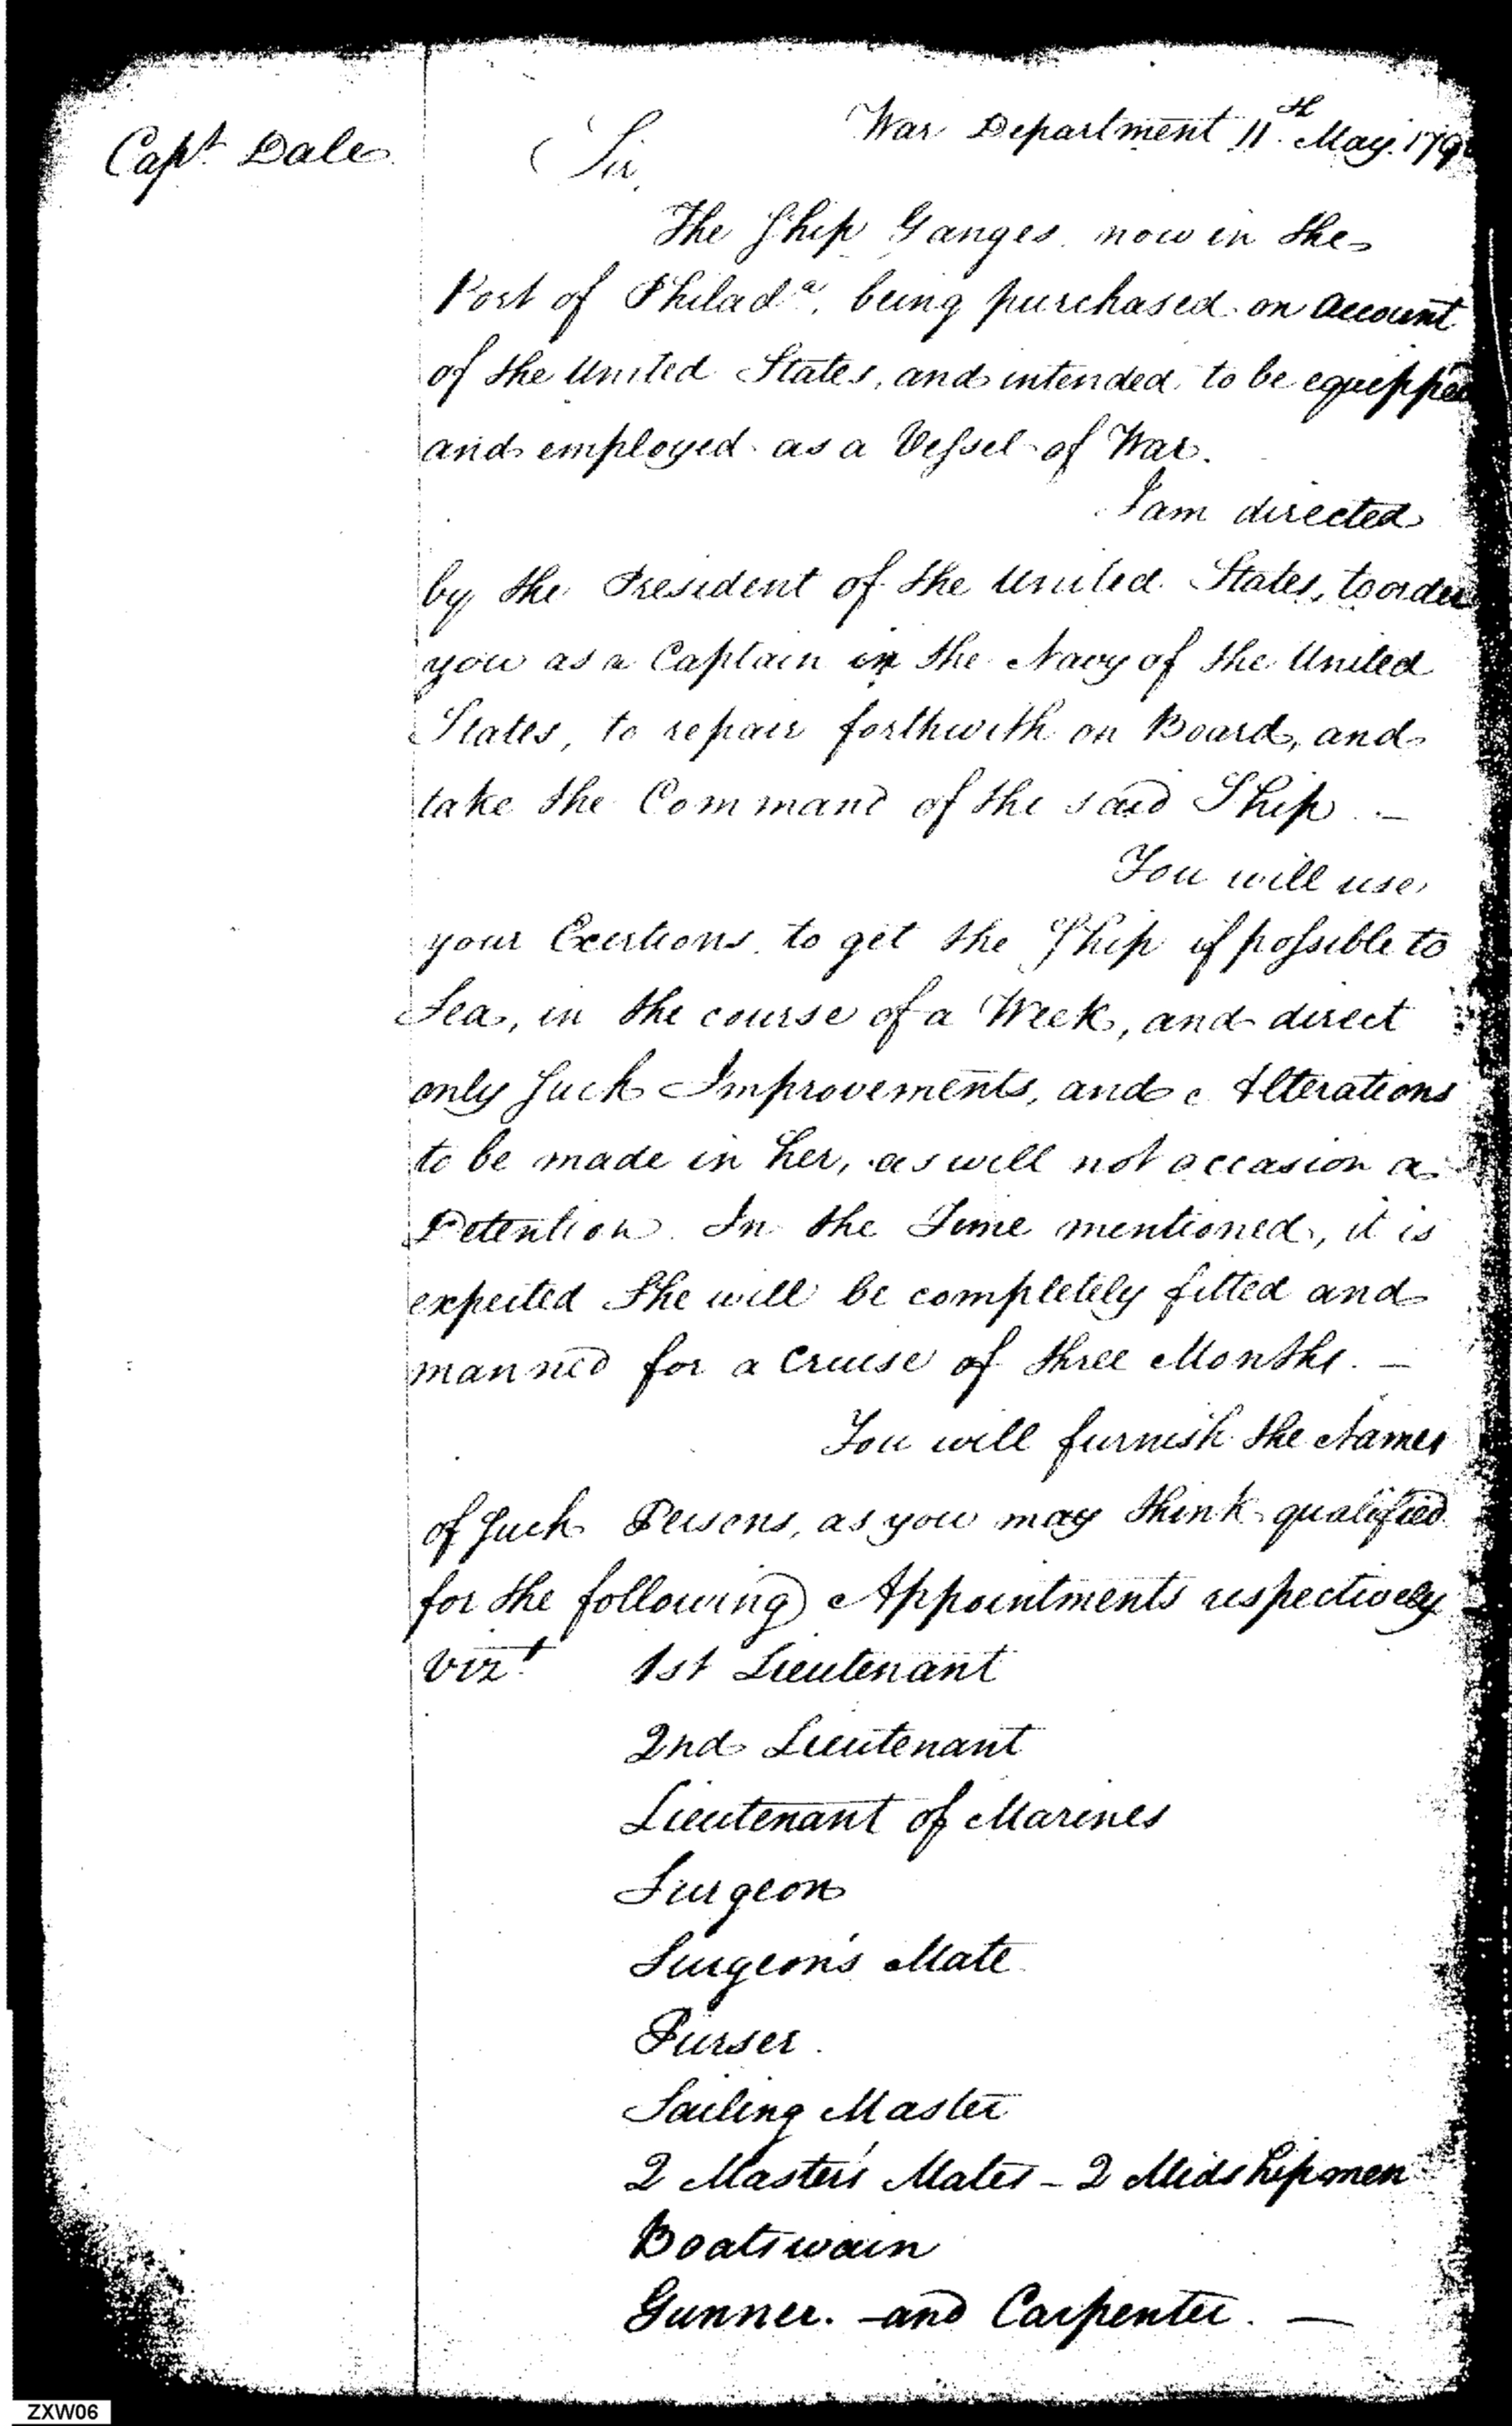 Capt. Dale
War Department 11th May. 179
Sir,
The Ship Ganges now in the
Port of Philada. being purchased on account
of the United States, and intended to be equipped
and employed as a Vessel of War.
I am directed
by the President of the United States, to order
you as a Captain in the Navy of the United
States, to repair forthwith on Board, and
take the Command of the said Ship. —
You will use
your Exertions to get the Ship if possible to
Sea, in the course of a Week, and direct
only such Improvements, and Alterations
to be made in her, as will not occasion a
Detention. In the Time mentioned, it is
expected She will be completely fitted and
manned for a Cruise of three Months. —
You will furnish the Names
of such Persons, as you may think qualified
for the following Appointments respectively
Vizt 1st Lieutenant
2nd Lieutenant
Lieutenant of Marines
Surgeon
Surgeon's Mate
Purser.
Sailing Master
2 Master's Mates – 2 Midshipmen
Boatswain
Gunner. – and Carpenter. —
ZXW06